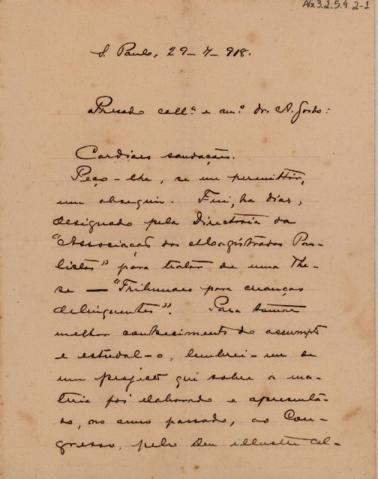 AG3.2.5.4.2-1
S. Paulo, 29-7-918.
Presado coll.ª e am.º dr. A. Gordo:
Cordiaes saudações.
Peço-lhe, se me permittir,
um obsequio. Fui, ha dias,
designado pela Directoria da
"Associação dos Magistrados Pau-
listas" para tratar de uma The-
se — "Tribunaes para crianças
delinquentes". Para tomar
melhor conhecimento do assumpto
e estudal-o, lembrei-me de
um projecto que sobre a ma-
teria foi elaborado e apresenta-
do, no anno passado, ao Con-
gresso, pelo seu illustre col-